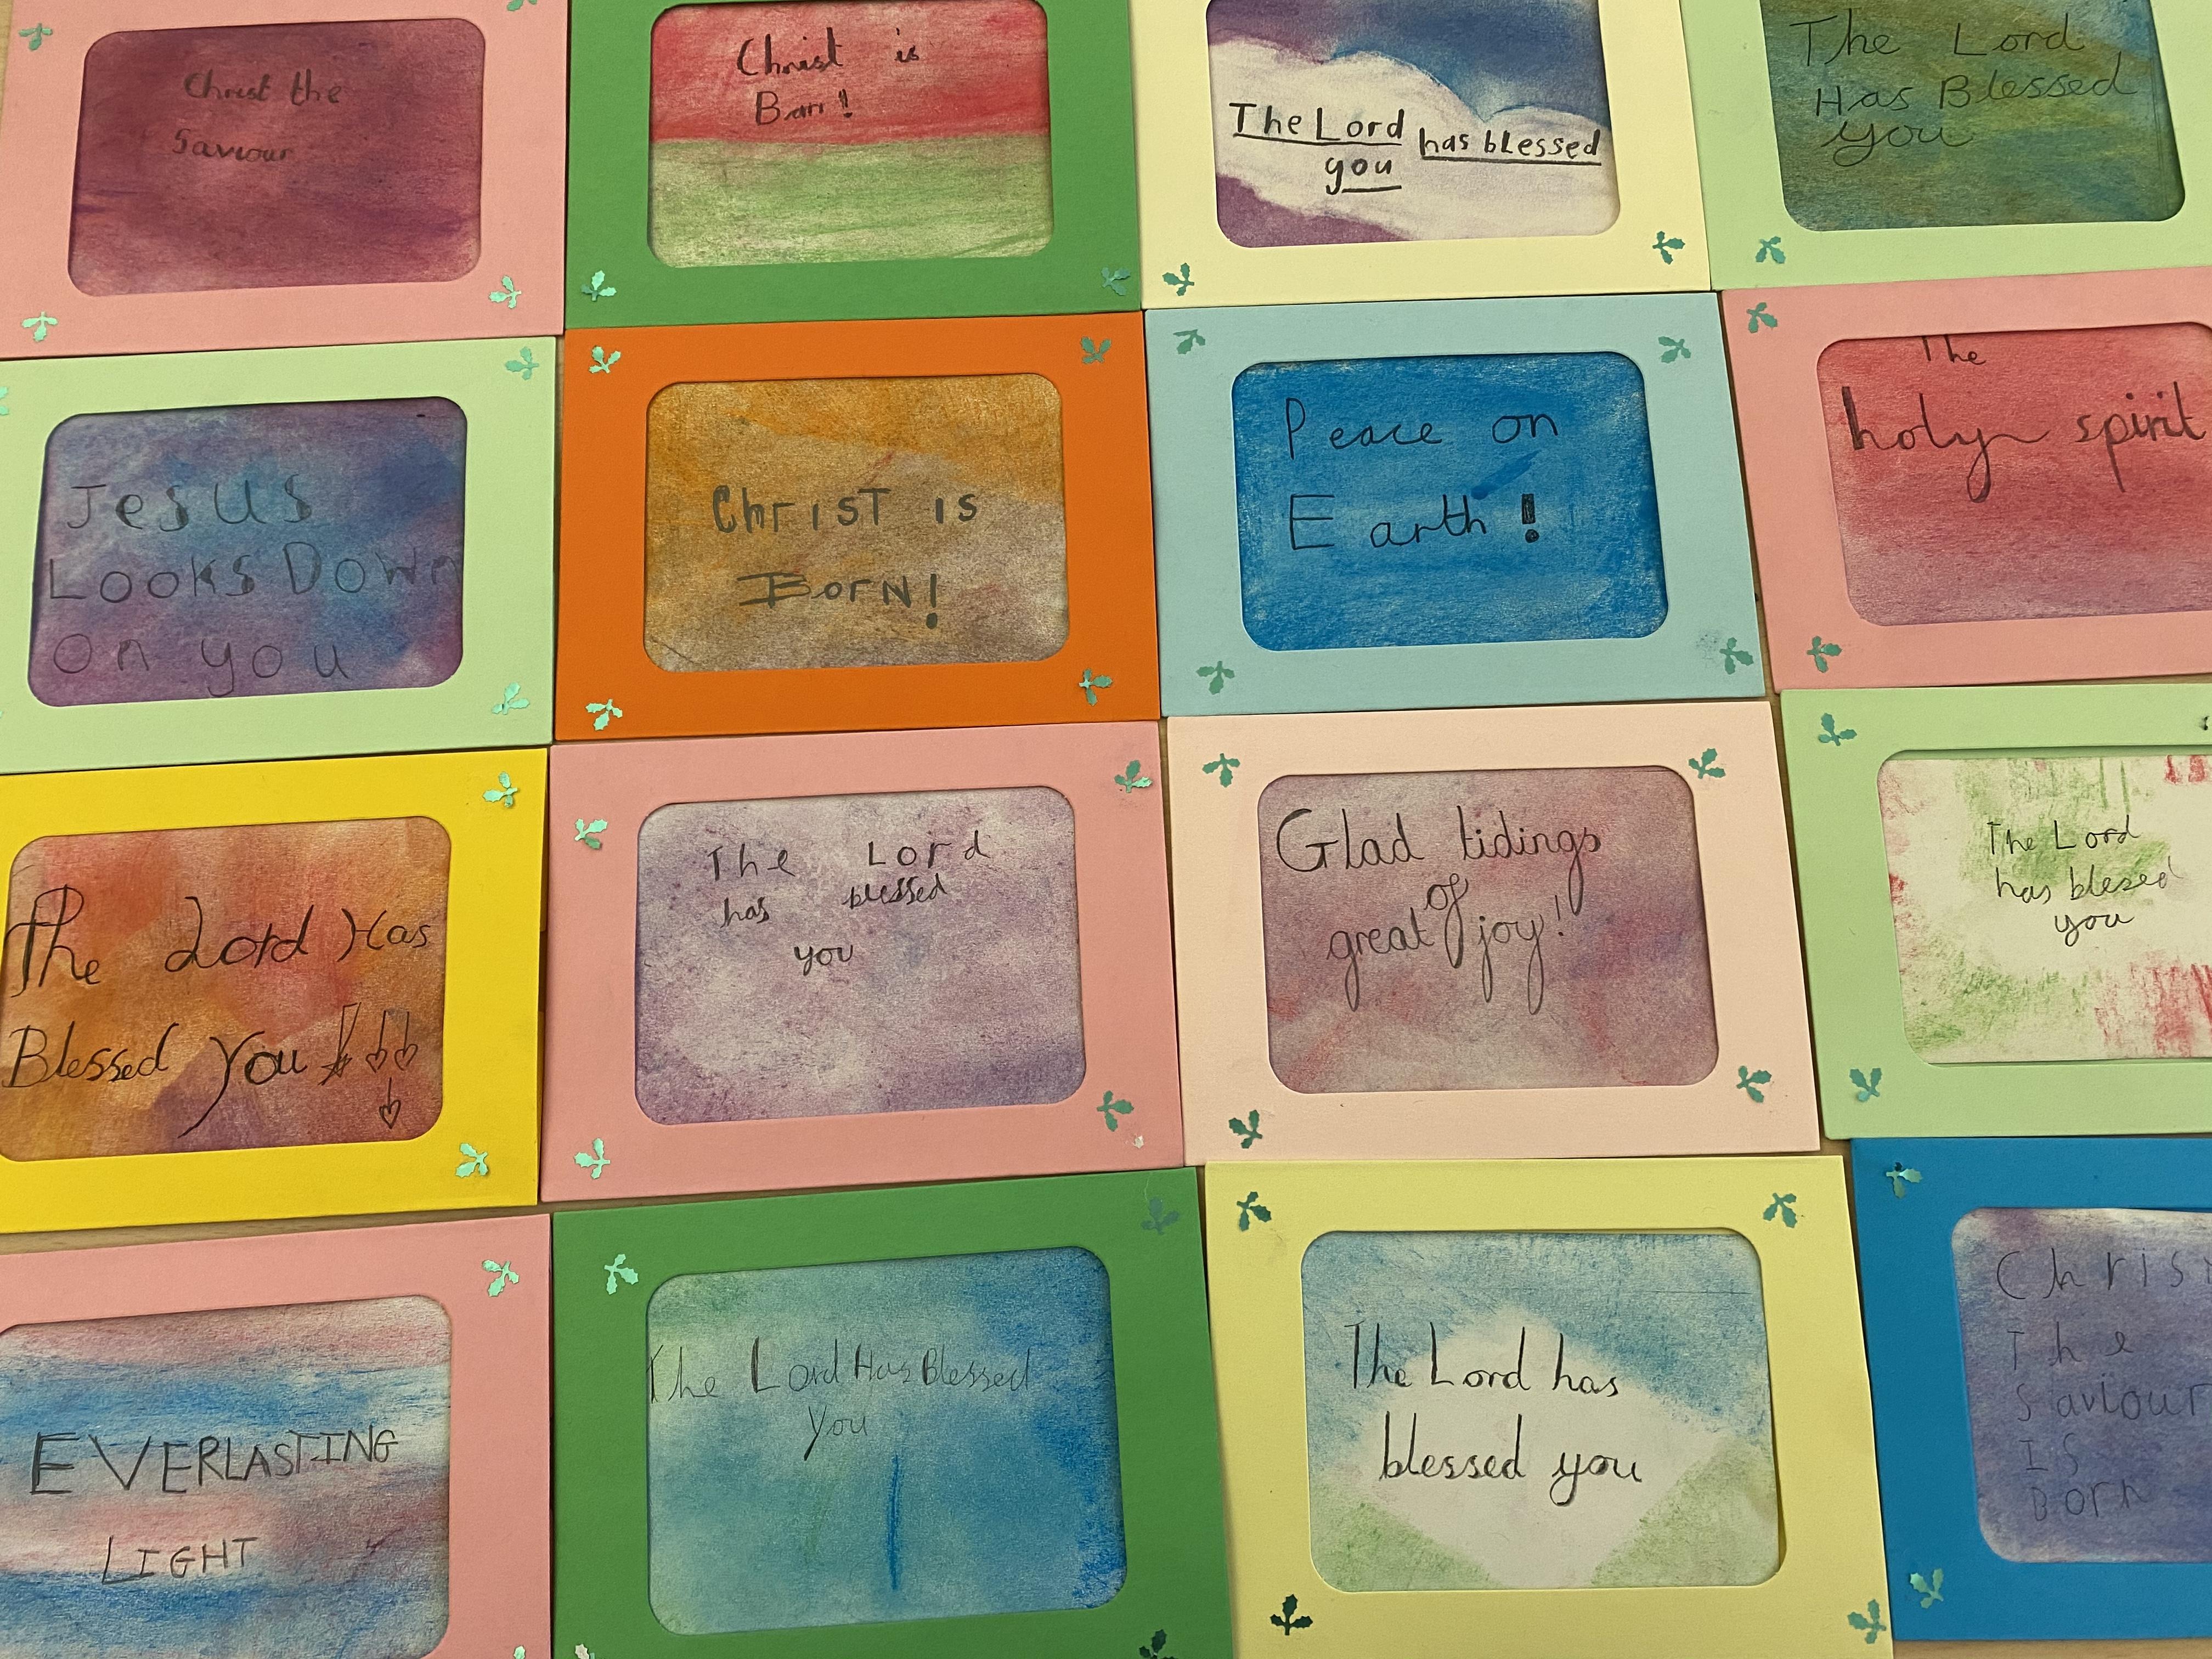 Christ the
Saviour
Christ is
Born!
The Lord has blessed
you
The Lord
Has Blessed
you
Jesus
Looks Down
on you
Christ is
Born!
Peace on
Earth!
The
holy spirit
The Lord Has
Blessed You
The Lord
has blessed
you
Glad tidings
of
great joy!
The Lord
has blessed
you
EVERLASTING
LIGHT
The Lord Has Blessed
You
The Lord has
blessed you
Christ
The
Saviour
IS
Born